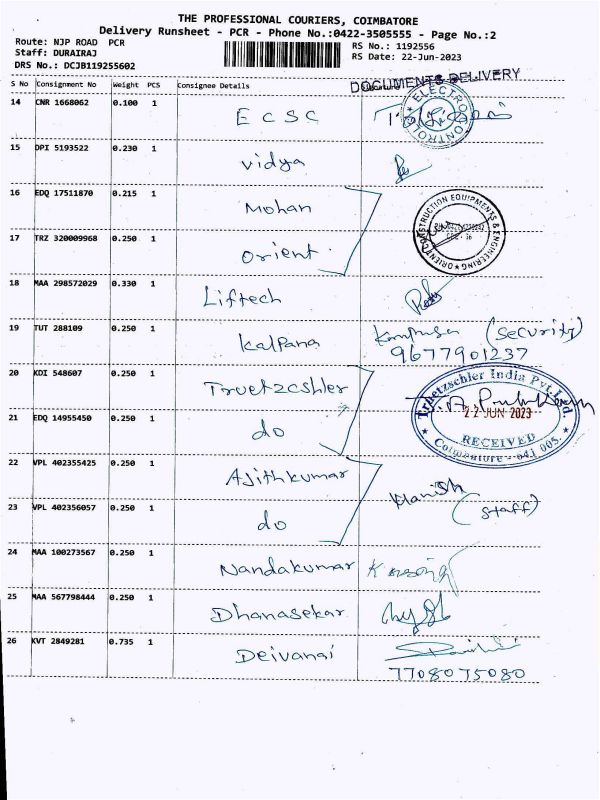 THE PROFESSIONAL COURIERS, COIMBATORE
Delivery Runsheet - PCR - Phone No.:0422-3505555 - Page No.:2
Route: NJP ROAD PCR
Staff: DURAIRAJ
DRS No.: DCJB119255602
RS No.: 1192556
RS Date: 22-Jun-2023
DOCUMENTS DELIVERY
S No Consignment No Weight PCS Consignee Details
14 CNR 1668062 0.100 1 ECSC
ELECTRO CONTROLS
15 DPI 5193522 0.230 1 vidya
16 EDQ 17511870 0.215 1 Mohan
ORIENT CONSTRUCTION EQUIPMENTS & ENGINEERING
17 TRZ 320009968 0.250 1 Orient
18 MAA 298572029 0.330 1 Liftech
19 TUT 288109 0.250 1 Kalpana (security)
9677901237
20 KDI 548607 0.250 1 Truetzcshler
Truetzschler India Pvt. Ltd.
22 JUN 2023
RECEIVED
Coimbatore - 641 005.
21 EDQ 14955450 0.250 1 do
22 VPL 402355425 0.250 1 Ajithkumar
23 VPL 402356057 0.250 1 do (staff)
24 MAA 100273567 0.250 1 Nandakumar
25 MAA 567798444 0.250 1 Dhanasekar
26 KVT 2849281 0.735 1 Deivanai
7708075080